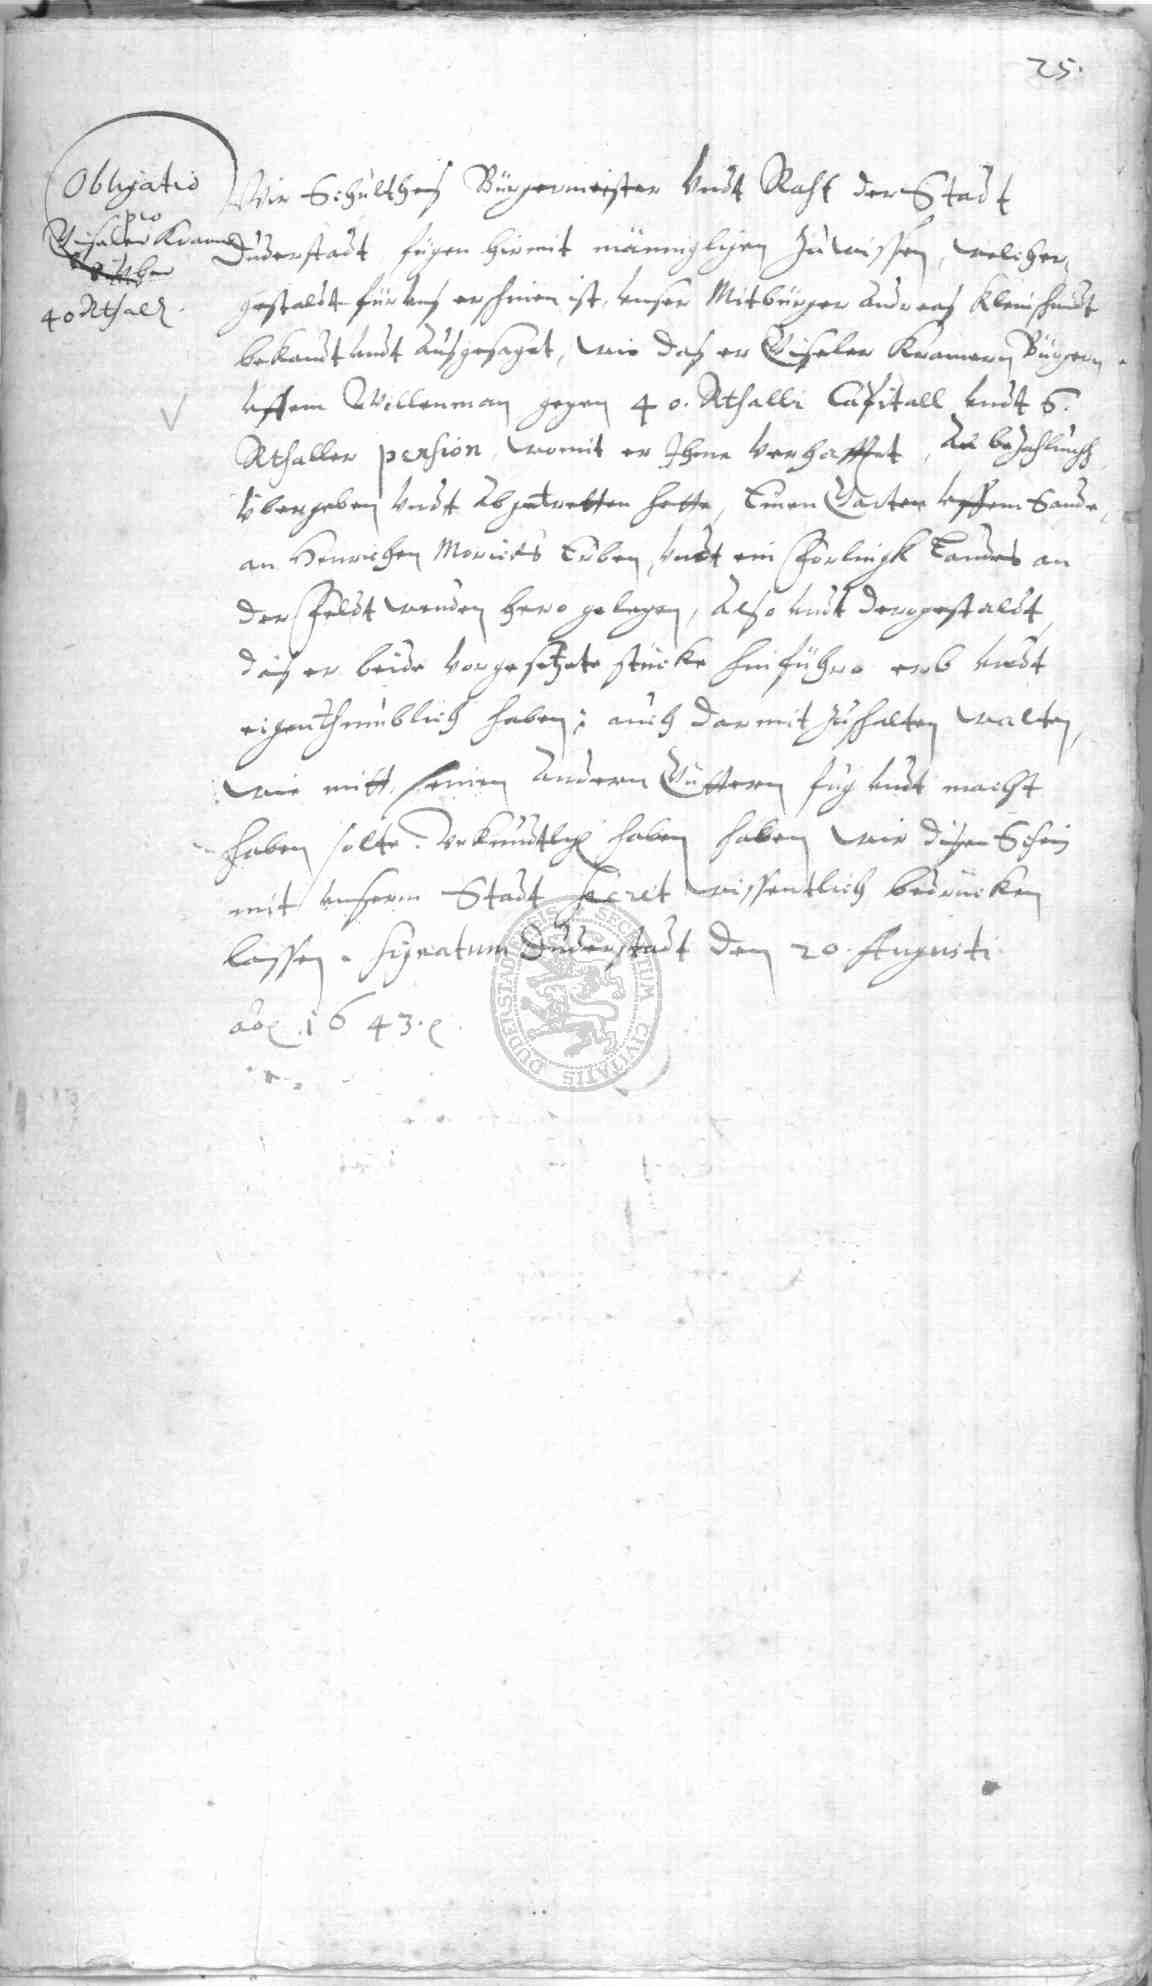 25.
Obligatio
pro
Giseler Kramer
40 Rthall
Wir Schultheis Bürgermeister vndt Raht der Stadt
Duderstadt fügen hirmit männiglichen zu wissen, welicher
gestaldt für vns erschinen ist, vnser Mitbürger Andreas Kleinschmidt
bekandt vndt ausgesaget, wie das er Giseler Kramern Bürgern
vffem Willenman gegen 40. Rthaller Capitall vndt 6.
Rthaller pension, womit er Ihme verhafftet, An bezahlungh
vbergeben vndt abgetretten hette, Einen Garten vffem Sande,
an Henrichen Moricks Erben, vndt ein Forlingk Landes an
der Feldt wenden hero gelegen, also vndt dergestaldt,
das er beide vorgesetzete stücke hinführo erb vndt
eigenthumblich haben, auch darmit zu schalten walten,
wie mitt seinen andern Güttern fug vndt macht
haben solte. Vrkundtlich haben haben wir disen Schein
mit vnserm Stadt Secret wissentlich bedrücken
lassen. Signatum Duderstadt den 20. Augusti
ao 1643.
SECRETUM CIVITATIS DUDERSTADENSIS